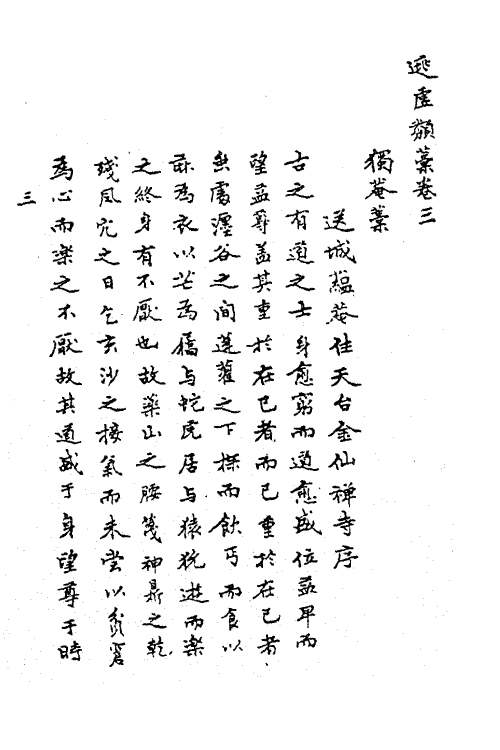 逃虛類藁卷三
獨菴藁
送城蘊菴住天台金仙禅寺序
古之有道之士身愈窮而道愈盛位益卑而
望益尊盖其重於在已者而已重於在已者
無處溼谷之間蓬藋之下掬而飲丐而食以
麻為衣以芒為屩与蛇虎居与猿狖遊而楽
之終身有不厭也故藥山之腰篾神鼎之乾
殘風穴之日乞玄沙之接氣而未嘗以貧窘
為心而楽之不厭故其道盛于身望尊于時
三